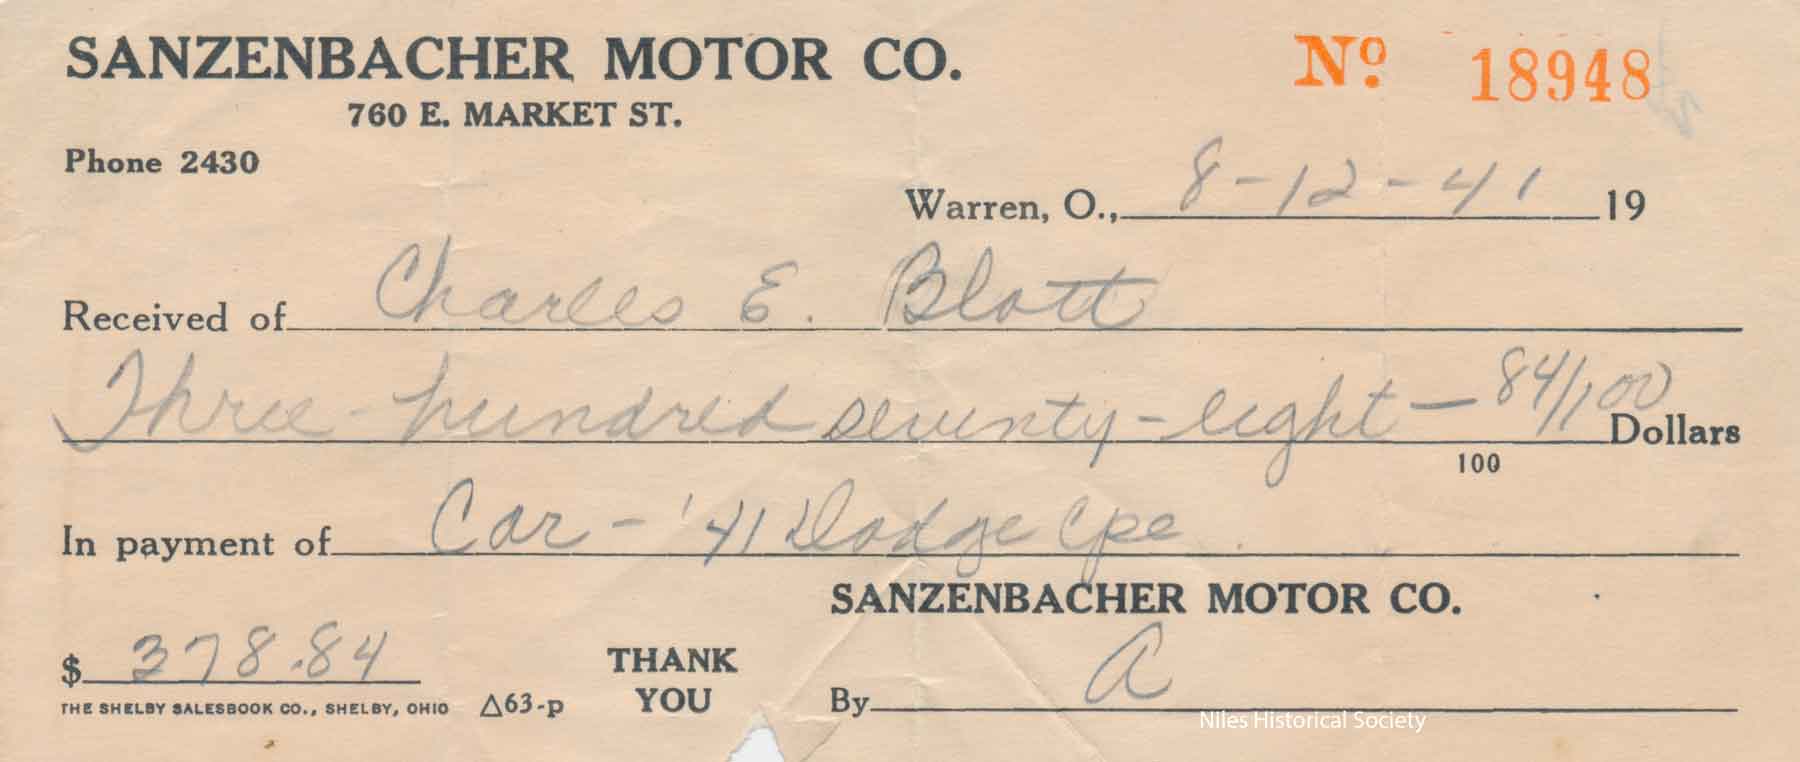 SANZENBACHER MOTOR CO.
Nº 18948
760 E. MARKET ST.
Phone 2430
Warren, O., 8-12-41 19
Received of Charles E. Blott
Three-hundred seventy-eight — 84/100 Dollars
100
In payment of Car - '41 Dodge Cpe
SANZENBACHER MOTOR CO.
$ 378.84
THANK YOU
By A
THE SHELBY SALESBOOK CO., SHELBY, OHIO △63-p
Niles Historical Society